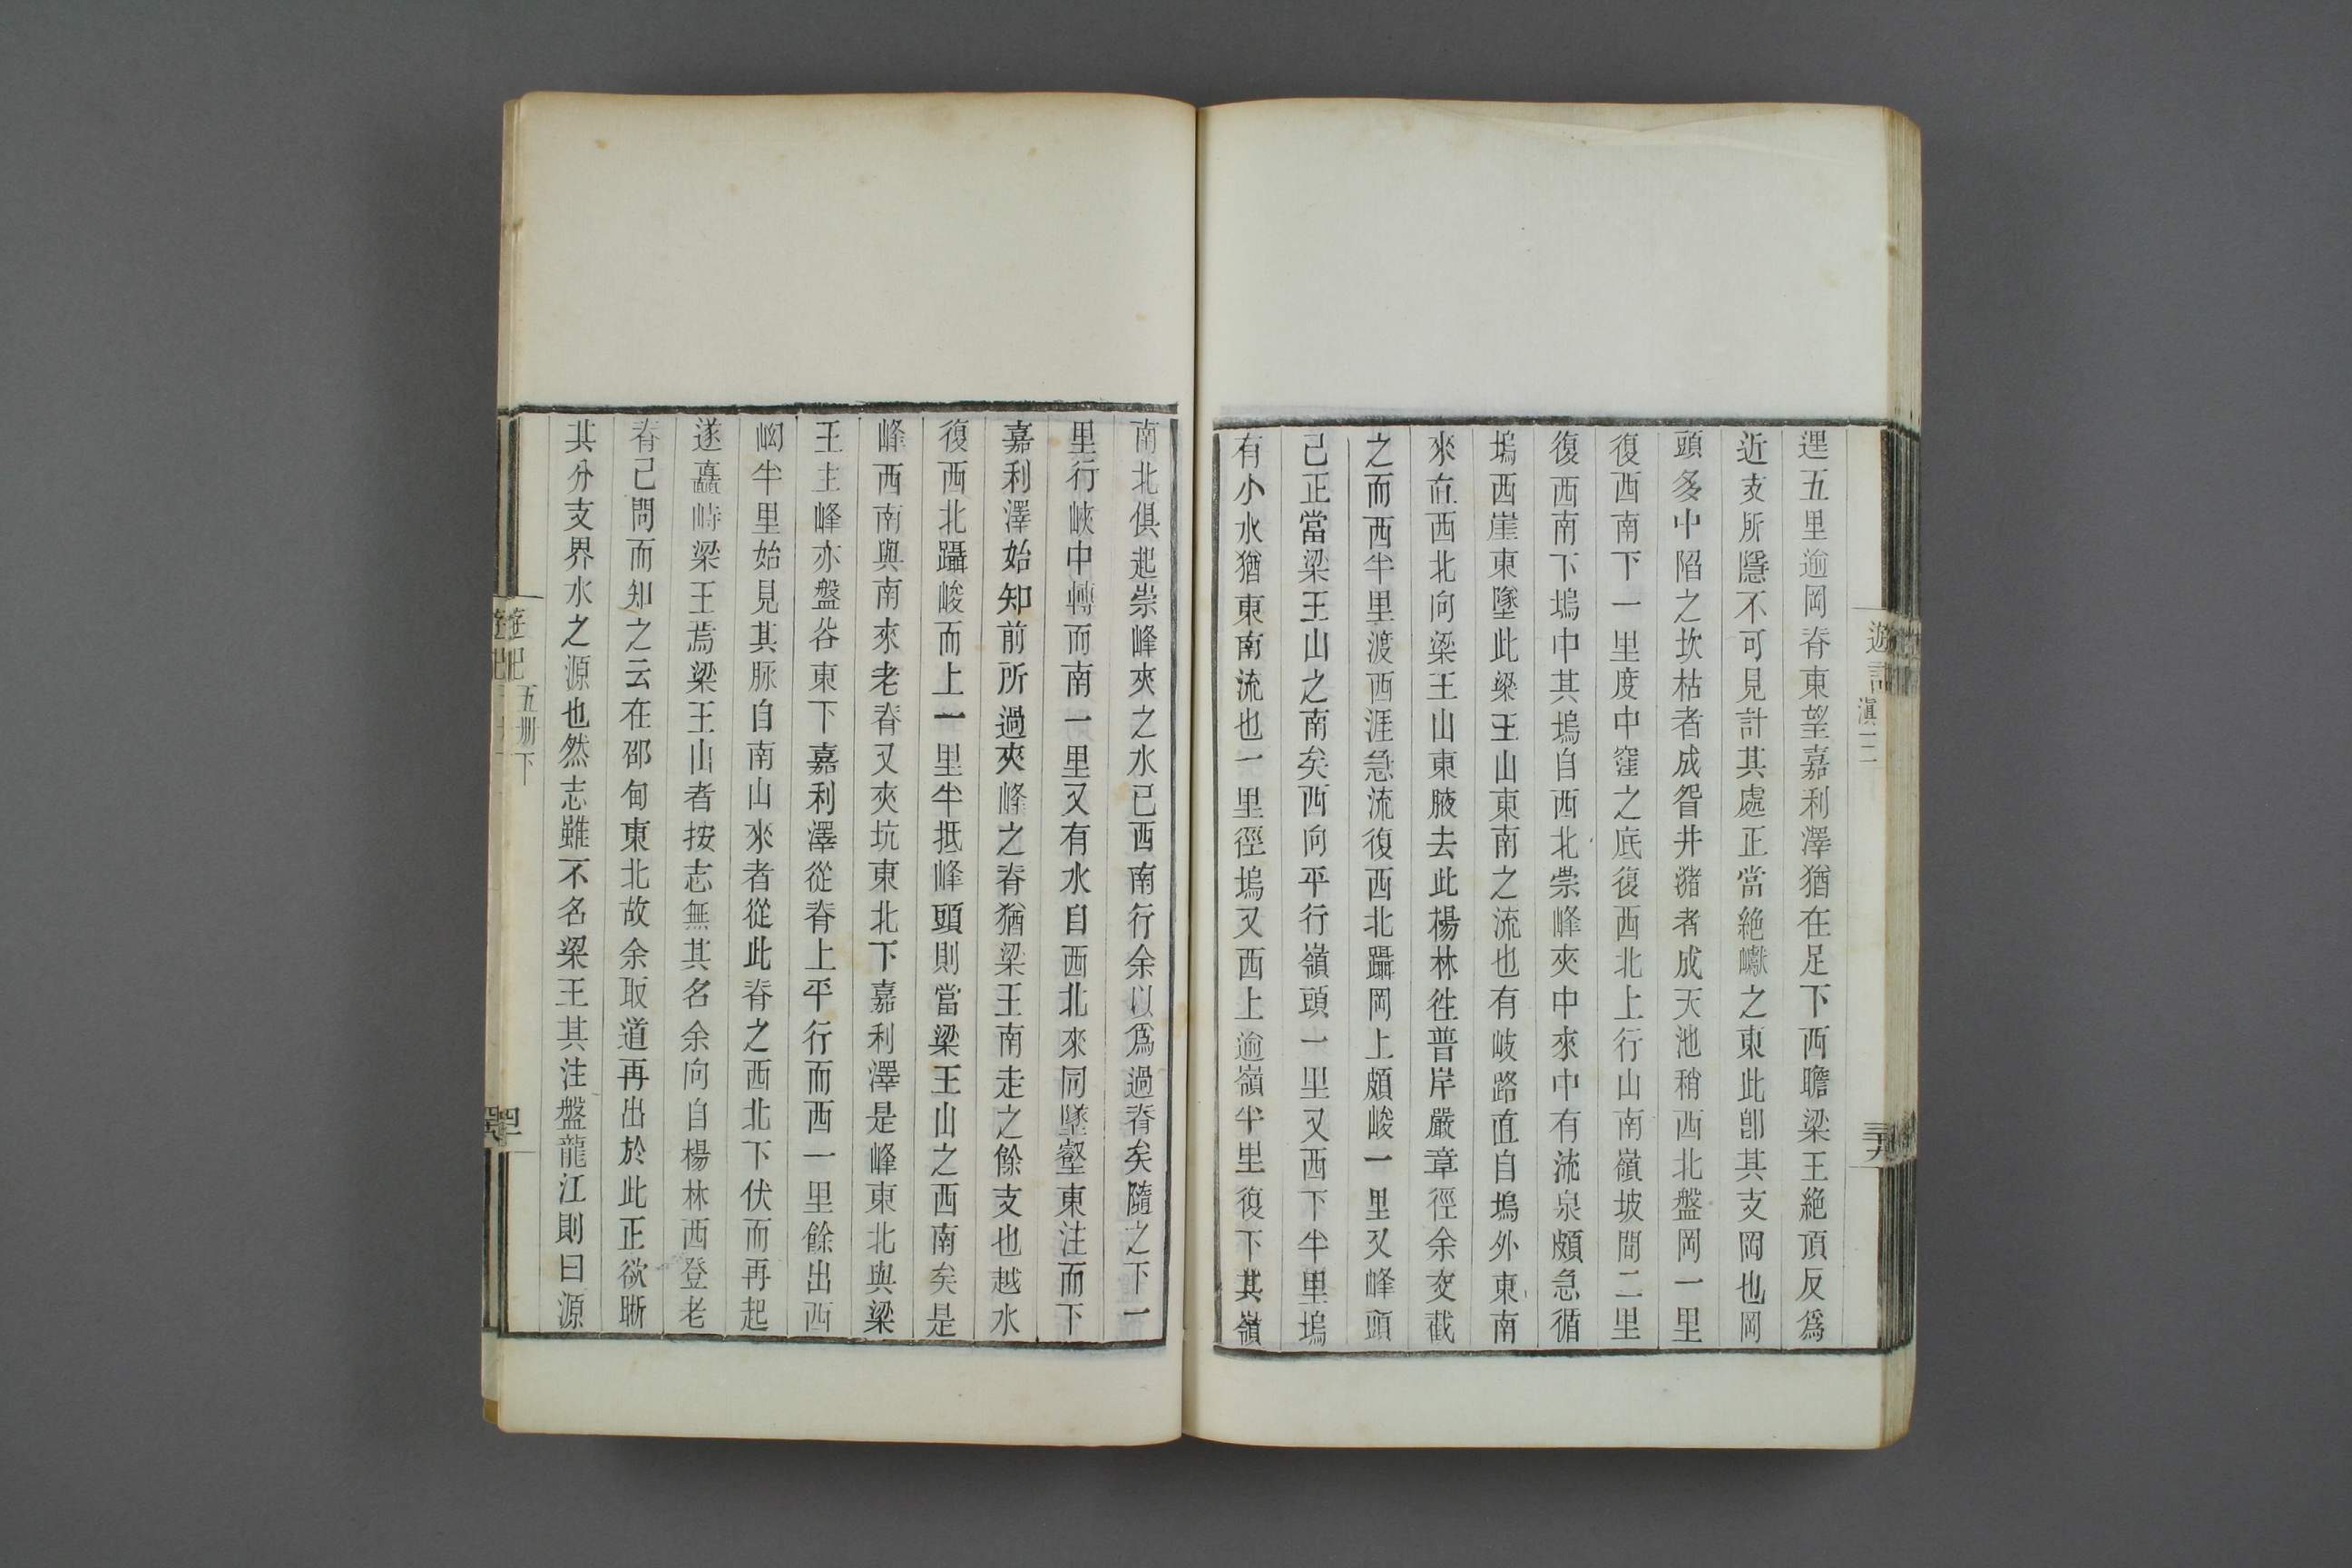 遊記
滇三
三十九
逕五里逾岡脊東望嘉利澤猶在足下西瞻梁王絶頂反爲
近支所隱不可見計其處正當絶巘之東此卽其支岡也岡
頭多中陷之坎枯者成眢井瀦者成天池稍西北盤岡一里
復西南下一里度中窪之底復西北上行山南嶺坡間二里
復西南下塢中其塢自西北崇峰夾中來中有流泉頗急循
塢西崖東墜此梁王山東南之流也有岐路直自塢外東南
來直西北向梁王山東腋去此楊林徃普岸嚴章徑余交截
之而西半里渡西涯急流復西北躡岡上頗峻一里又峰頭
已正當梁王山之南矣西向平行嶺頭一里又西下半里塢
有小水猶東南流也一里徑塢又西上逾嶺半里復下其嶺
南北俱起崇峰夾之水已西南行余以爲過脊矣隨之下一
里行峽中轉而南一里又有水自西北來同墜壑東注而下
嘉利澤始知前所過夾峰之脊猶梁王南走之餘支也越水
復西北躡峻而上一里半抵峰頭則當梁王山之西南矣是
峰西南與南來老脊又夾坑東北下嘉利澤是峰東北與梁
王主峰亦盤谷東下嘉利澤從脊上平行而西一里餘出西
坳半里始見其脉自南山來者從此脊之西北下伏而再起
遂矗峙梁王焉梁王山者按志無其名余向自楊林西登老
脊已問而知之云在邵甸東北故余取道再出於此正欲晰
其分支界水之源也然志雖不名梁王其注盤龍江則曰源
遊記
五册下
四十